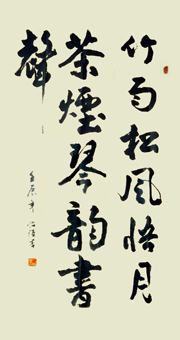 竹雨松風梧月
茶煙琴韻書
聲